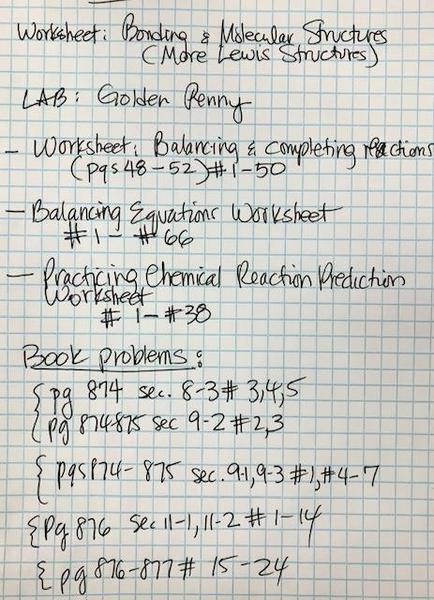 Worksheet: Bonding & Molecular Structures
(More Lewis Structures)
LAB: Golden Penny
- Worksheet: Balancing & completing reactions
(pgs 48-52) #1-50
- Balancing Equations Worksheet
# 1 - # 66
- Practicing Chemical Reaction Prediction
Worksheet
# 1 - #38
Book problems:
{ pg 874 sec. 8-3 # 3,4,5
{ pg 874-875 sec 9-2 # 2,3
{ pgs 874- 875 sec. 9-1, 9-3 #1, #4-7
{ Pg 876 sec 11-1, 11-2 # 1-14
{ pg 876-877 # 15-24